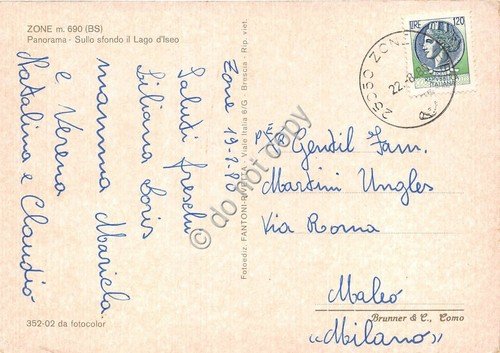 ZONE m. 690 (BS)
Panorama - Sullo sfondo il Lago d'Iseo
Zone 19.7.80
Saluti freschi
Liliana Loris
mamma Mariela
e Verena
Natalina e Claudio
352-02 da fotocolor
Fotoediz. FANTONI- Viale Italia 6/G - Brescia - Rip. viet.
LIRE 120
25050 ZONE
22-8
Gentil Fam.
Martini Ungles
Via Roma
Maleo
Brunner & C., Como
«Milano»
do not copy